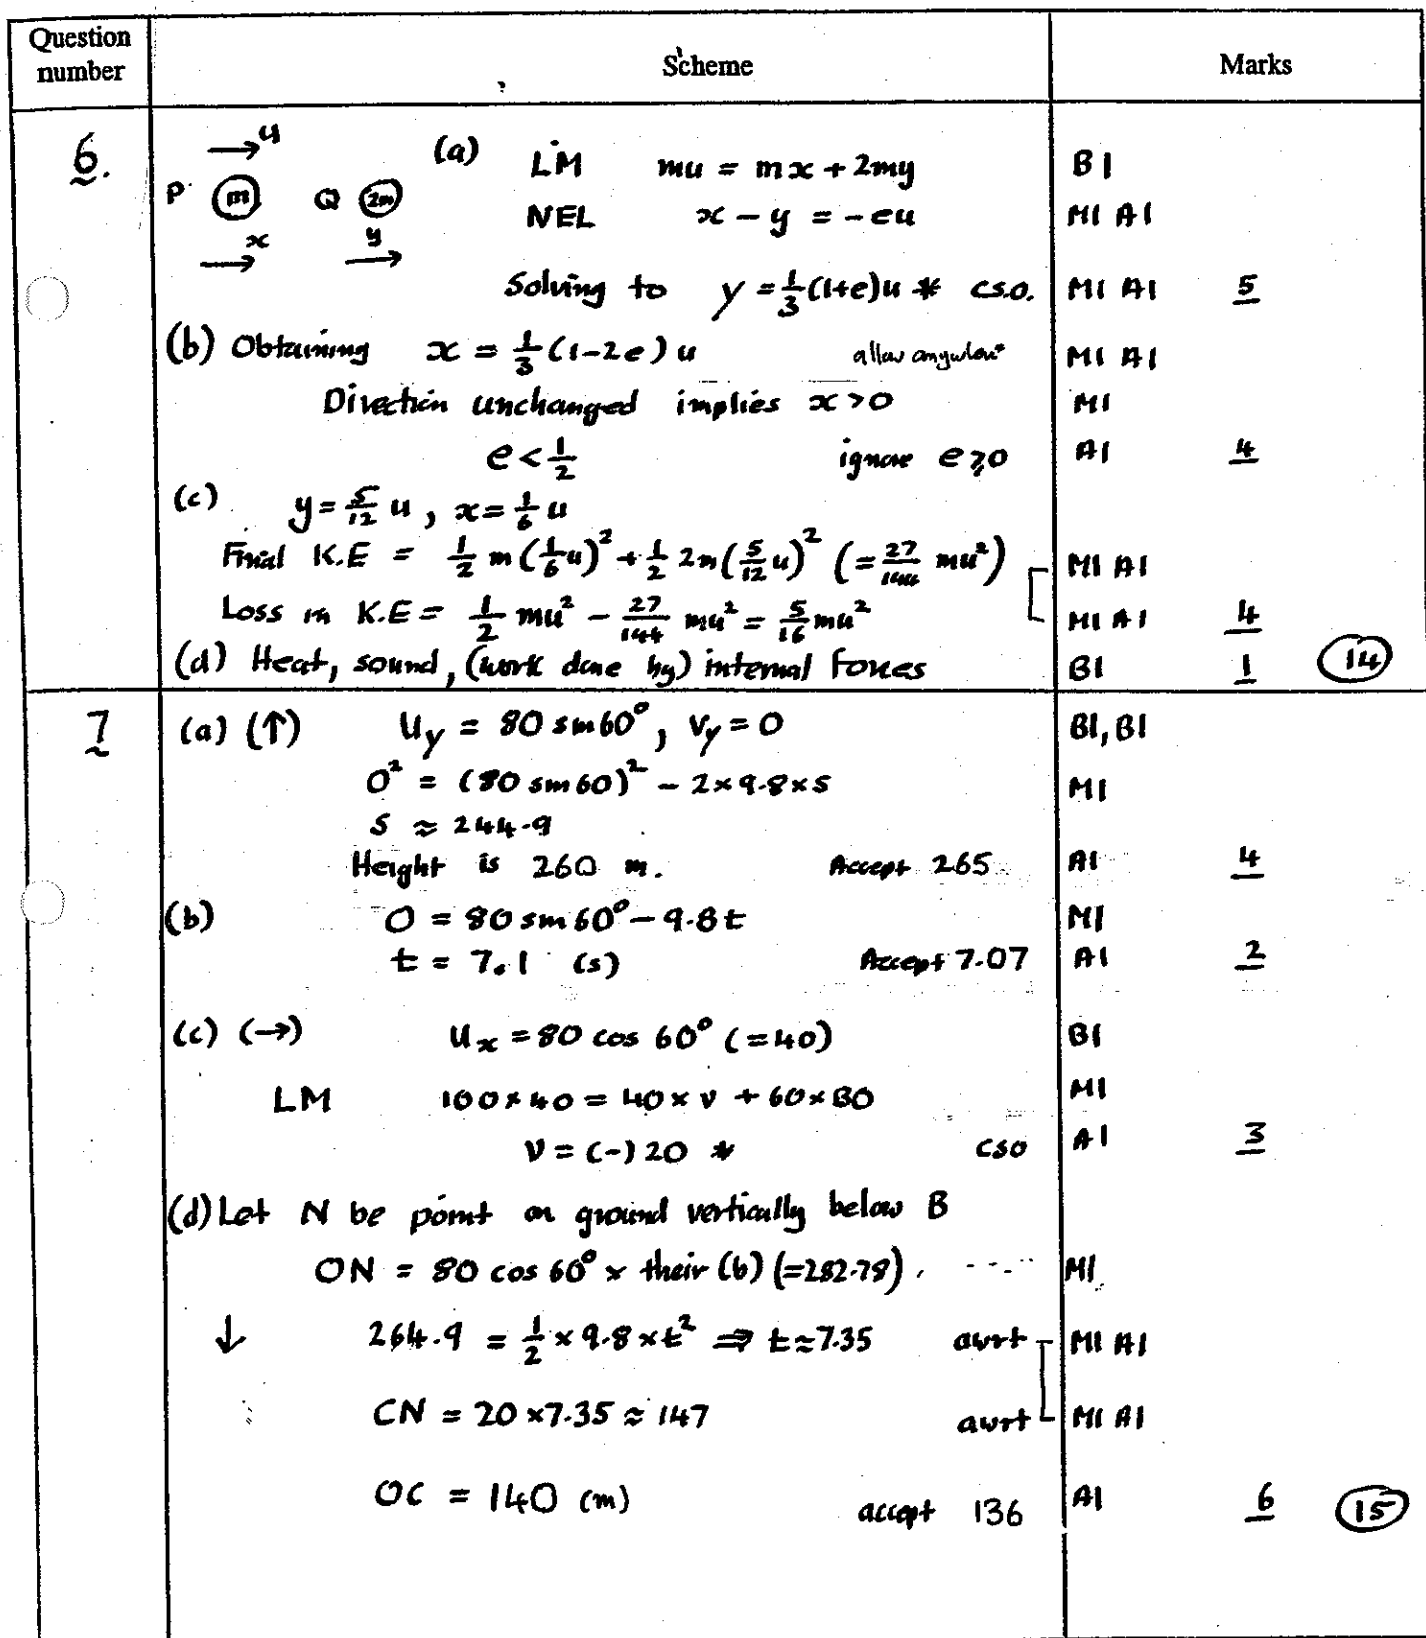 Question number Scheme Marks
6. →u (a) LM mu = mx + 2my B1
P (m) Q (2m) NEL x − y = −eu M1 A1
→x →y
Solving to y = 1/3 (1+e)u * c.s.o. M1 A1 5
(b) Obtaining x = 1/3 (1−2e)u allow M1 A1
Direction unchanged implies x > 0 M1
e < 1/2 ignore e ≥ 0 A1 4
(c) y = 5/12 u, x = 1/6 u
Final K.E = 1/2 m(1/6 u)² + 1/2 2m(5/12 u)² (= 27/144 mu²) M1 A1
Loss in K.E = 1/2 mu² − 27/144 mu² = 5/16 mu² M1 A1 4
(d) Heat, sound, (work done by) internal forces B1 1 (14)
7 (a) (↑) u_y = 80 sin 60°, v_y = 0 B1, B1
0² = (80 sin 60)² − 2×9.8×s M1
s ≈ 244.9
Height is 260 m. Accept 265 A1 4
(b) 0 = 80 sin 60° − 9.8t M1
t = 7.1 (s) Accept 7.07 A1 2
(c) (→) u_x = 80 cos 60° (=40) B1
LM 100×40 = 40×v + 60×80 M1
v = (−)20 * cso A1 3
(d) Let N be point on ground vertically below B
ON = 80 cos 60° × their (b) (=282.78). M1
↓ 264.9 = 1/2 × 9.8 × t² ⇒ t ≈ 7.35 awrt M1 A1
CN = 20×7.35 ≈ 147 awrt M1 A1
OC = 140 (m) accept 136 A1 6 (15)